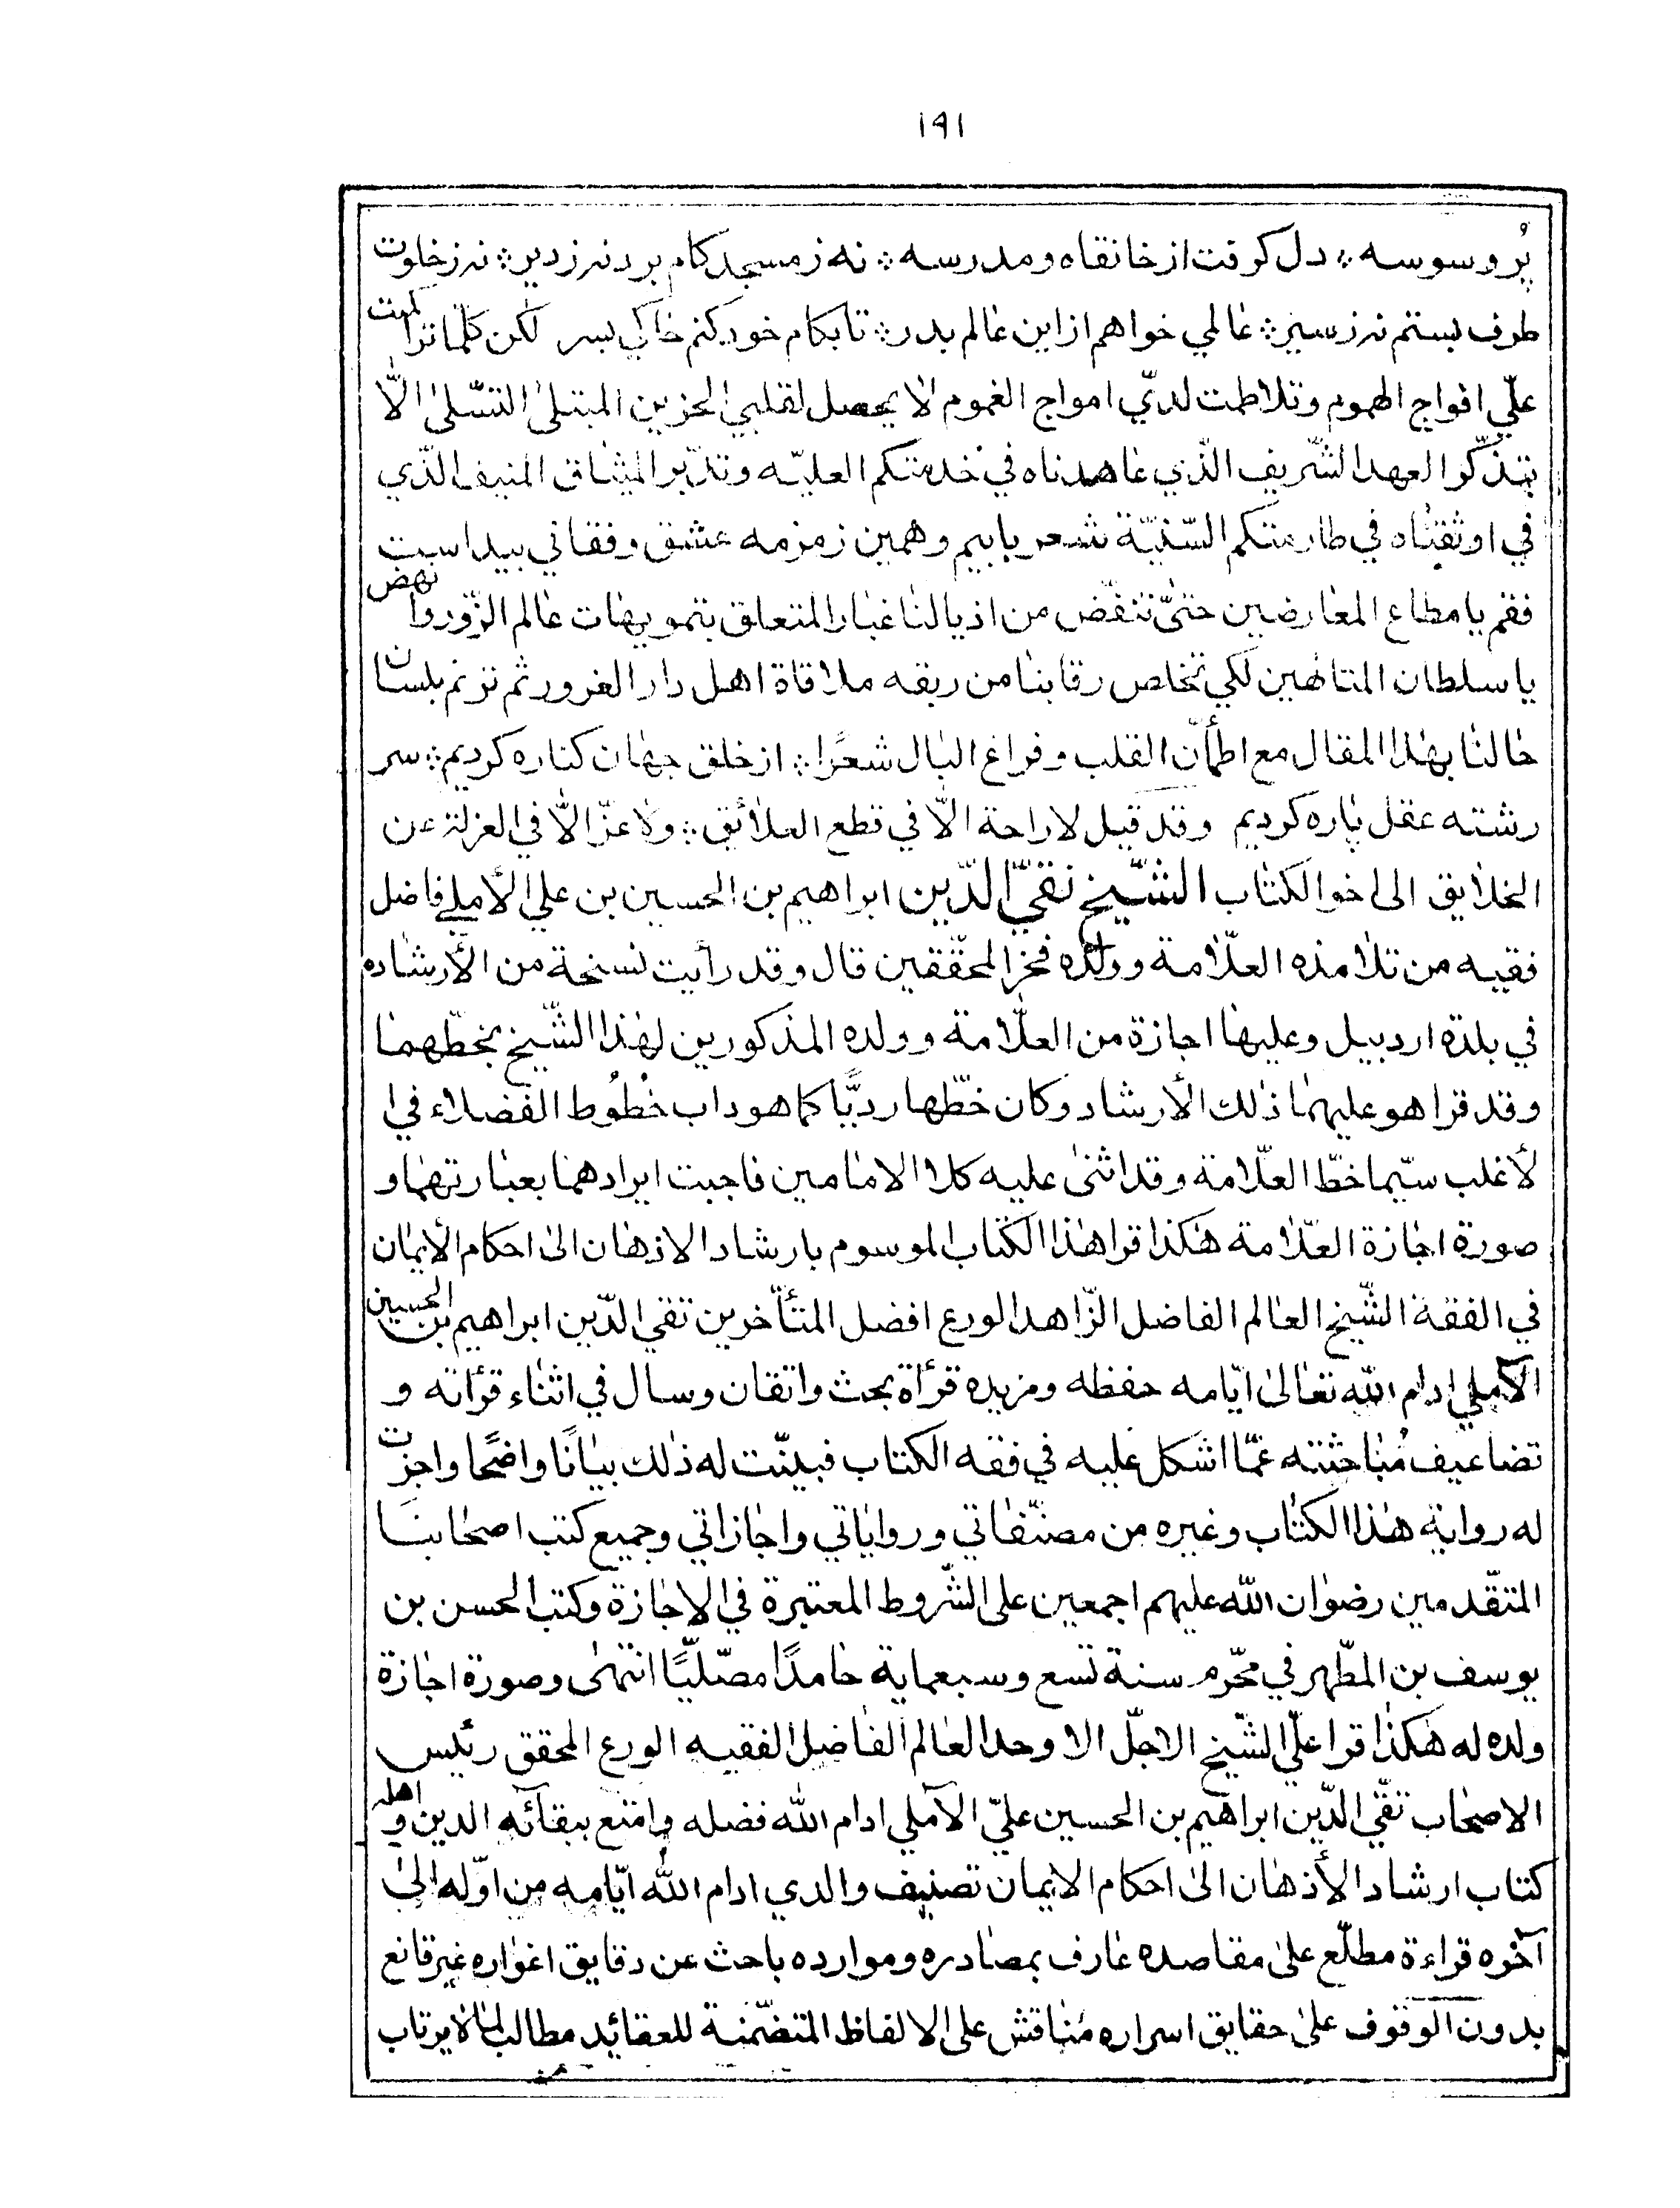 ١٩١
پُر وسوسه ∴ دل گرفت از خانقاه ومدرسه ∴ نه ز مسجد کام بردنه ز دیر ∴ نه ز خلوت
طرف بستم نه ز سیر ∴ عالمی خواهم از این عالم بدر ∴ تا بکام خود کنم خاکی بسر لکن کلّما تراکمت
علّي افواج الهموم وتلاطمت لديّ امواج الغموم لا يحصل لقلبي الحزين المبتلى التسّلى الّا
بتذكّر العهد الشّريف الّذي عاهدناه في خدمتكم العليّه وتدّبر الميثاق المنيف الّذي
في اوثقناه في طارمتكم السّنيّة شعر یابیم وهمین زمزمه عشق وفقانی بیداست
فقم يا مطاع المعارضين حتىّ ننفّض من اذيالنا غبار المتعلق بتمويهات عالم الزّور وانهض
يا سلطان المتالهين لكي تخلص رقابنا من ربقه ملاقاة اهل دار الغرور ثم ترنم بلسان
حالنا بهذا المقال مع اطمأنّ القلب وفراغ البال شعرًا ∴ از خلق جهان کناره کردیم ∴ سر
رشته عقل پاره کردیم وقد قيل لا راحة الّا في قطع العلائق ∴ ولا عزّ الّا في العزلة عن
الخلايق الى اخو الكتاب الشّيخ تقيّ الدّين ابراهيم بن الحسين بن علي الأملي فاضل
فقيه من تلامذه العلّامة وولده فخر المحقّقين قال وقد رأيت نسخة من الأرشاده
في بلدة اردبيل وعليها اجازة من العلّامة وولده المذكورين لهذا الشّيخ بخطّهما
وقد قرا هو عليهما ذلك الأرشاد وكان خطّها رديًّا كما هو داب خُطُوط الفضلاء في ا
لأغلب سيّما خطّ العلّامة وقد اثنى عليه كلا الامامين فاحببت ايرادهما بعبارتهما و
صورة اجازة العلّامة هكذا قرا هذا الكتاب الموسوم بارشاد الاذهان الى احكام الأيمان
في الفقه الشّيخ العالم الفاضل الزّاهد الورع افضل المتأخرين تقي الدّين ابراهيم بن الحسين
الآملي ادام الله تعالى ايّامه حفظه ومزيده قرأة بحث واتقان وسال في اثناء قرأته و
تضاعيف مُباحثته عمّا اشكل عليه في فقه الكتاب فبيّنت له ذلك بيانًا واضحًا واجزت
له رواية هذا الكتاب وغيره من مصنّفاتي ورواياتي واجازاتي وجميع كتب اصحابنا
المتقّدمين رضوان الله عليهم اجمعين على الشّروط المعتبرة في الاجازة وكتب الحسن بن
يوسف بن المطّهر في محّرم سنة تسع وسبعماية حامدًا مصّليًّا انتهى وصورة اجازة
ولده له هكذا قرا علّي الشّيخ الاجلّ الاوحد العالم الفاضل الفقيه الورع المحقق رئيس
الاصحاب تقّي الدّين ابراهيم بن الحسين عليّ الآملي ادام الله فضله وامتع ببقائه الدين و اهله
كتاب ارشاد الأذهان الى احكام الايمان تصنيف والدي ادام الله ايّامه من اوّله الى
آخره قراءة مطلّع على مقاصده عارف بمصادره وموارده باحث عن دقايق اغواره غير قانع
بدون الوقوف على حقايق اسراره مُناقش على الالفاظ المتضّمنة للعقائد مطالب لما لا يرتاب